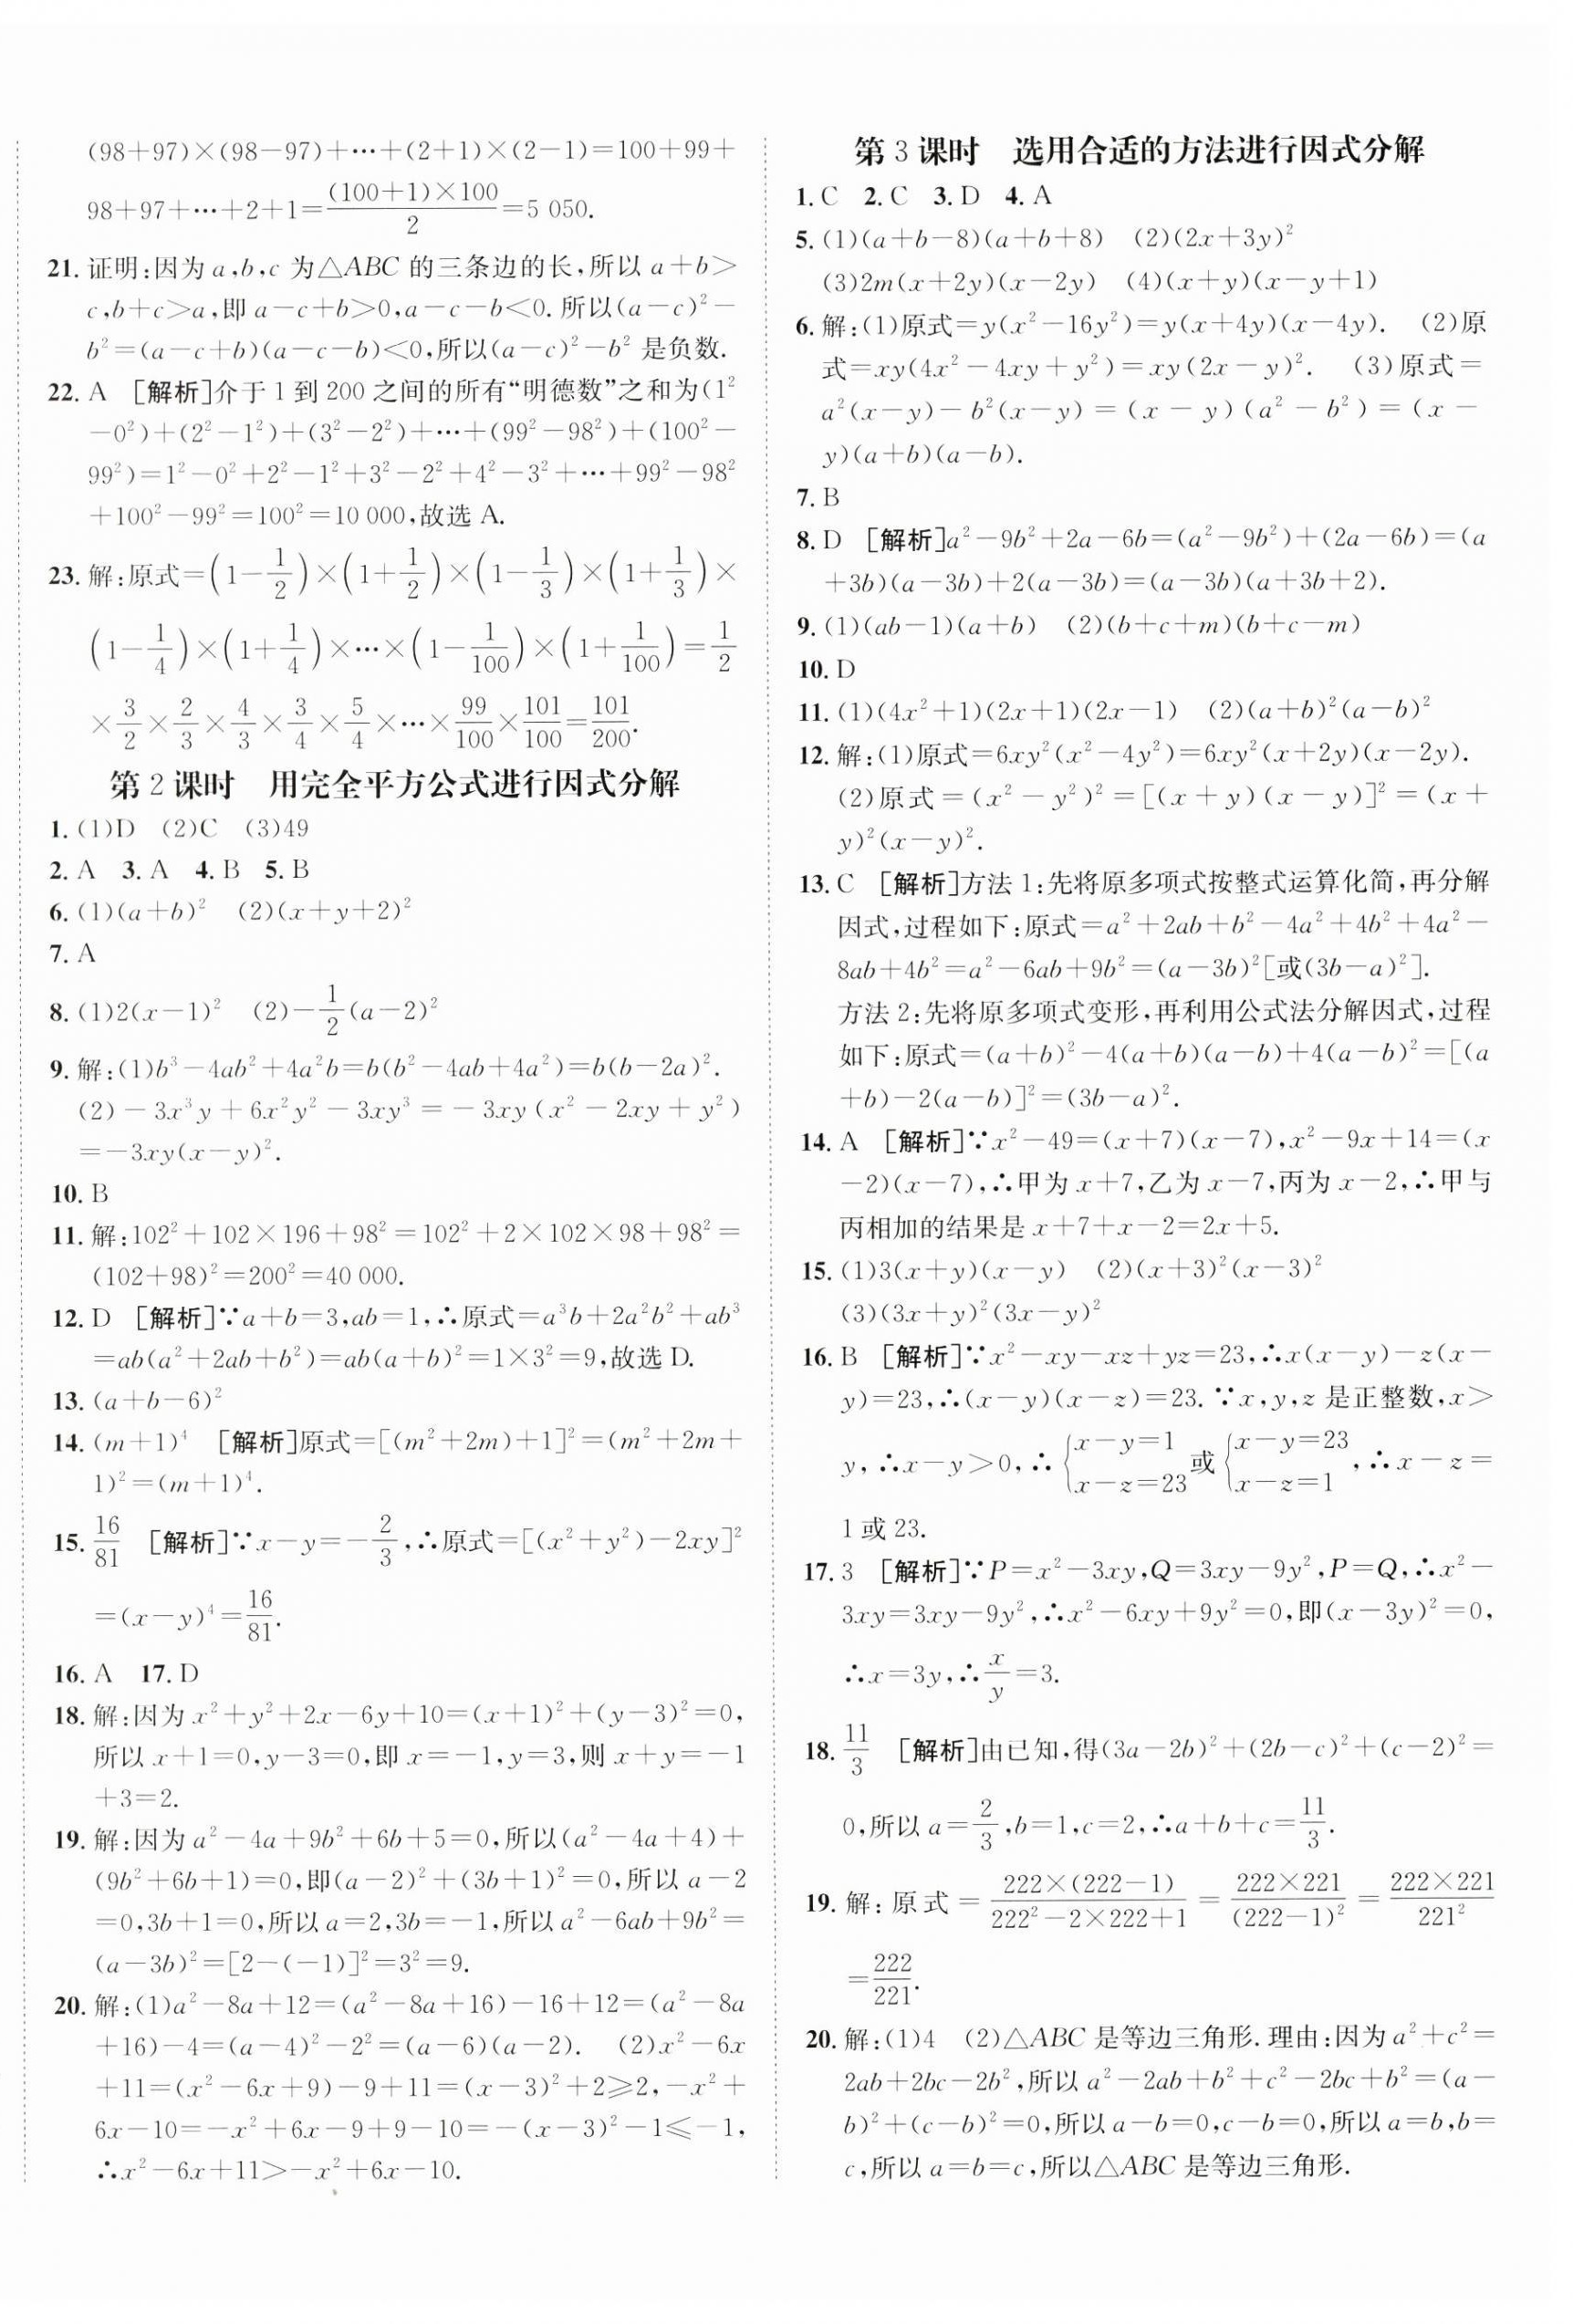 (98+97)×(98-97)+…+(2+1)×(2-1)=100+99+
98+97+…+2+1=\frac{(100+1)×100}{2}=5 050.
21. 证明:因为 a,b,c 为△ABC 的三条边的长,所以 a+b>
c,b+c>a,即 a-c+b>0,a-c-b<0. 所以(a-c)²-
b²=(a-c+b)(a-c-b)<0,所以(a-c)²-b² 是负数.
22. A [解析]介于 1 到 200 之间的所有“明德数”之和为(1²
-0²)+(2²-1²)+(3²-2²)+…+(99²-98²)+(100²-
99²)=1²-0²+2²-1²+3²-2²+4²-3²+…+99²-98²
+100²-99²=100²=10 000,故选 A.
23. 解:原式=(1-\frac{1}{2})×(1+\frac{1}{2})×(1-\frac{1}{3})×(1+\frac{1}{3})×
(1-\frac{1}{4})×(1+\frac{1}{4})×…×(1-\frac{1}{100})×(1+\frac{1}{100})=\frac{1}{2}
×\frac{3}{2}×\frac{2}{3}×\frac{4}{3}×\frac{3}{4}×\frac{5}{4}×…×\frac{99}{100}×\frac{101}{100}=\frac{101}{200}.
第 2 课时 用完全平方公式进行因式分解
1. (1)D (2)C (3)49
2. A 3. A 4. B 5. B
6. (1)(a+b)² (2)(x+y+2)²
7. A
8. (1)2(x-1)² (2)-\frac{1}{2}(a-2)²
9. 解:(1)b³-4ab²+4a²b=b(b²-4ab+4a²)=b(b-2a)².
(2)-3x³y+6x²y²-3xy³=-3xy(x²-2xy+y²)
=-3xy(x-y)².
10. B
11. 解:102²+102×196+98²=102²+2×102×98+98²=
(102+98)²=200²=40 000.
12. D [解析]∵a+b=3,ab=1,∴原式=a³b+2a²b²+ab³
=ab(a²+2ab+b²)=ab(a+b)²=1×3²=9,故选 D.
13. (a+b-6)²
14. (m+1)⁴ [解析]原式=[(m²+2m)+1]²=(m²+2m+
1)²=(m+1)⁴.
15. \frac{16}{81} [解析]∵x-y=-\frac{2}{3},∴原式=[(x²+y²)-2xy]²
=(x-y)⁴=\frac{16}{81}.
16. A 17. D
18. 解:因为 x²+y²+2x-6y+10=(x+1)²+(y-3)²=0,
所以 x+1=0,y-3=0,即 x=-1,y=3,则 x+y=-1
+3=2.
19. 解:因为 a²-4a+9b²+6b+5=0,所以(a²-4a+4)+
(9b²+6b+1)=0,即(a-2)²+(3b+1)²=0,所以 a-2
=0,3b+1=0,所以 a=2,3b=-1,所以 a²-6ab+9b²=
(a-3b)²=[2-(-1)]²=3²=9.
20. 解:(1)a²-8a+12=(a²-8a+16)-16+12=(a²-8a
+16)-4=(a-4)²-2²=(a-6)(a-2). (2)x²-6x
+11=(x²-6x+9)-9+11=(x-3)²+2≥2,-x²+
6x-10=-x²+6x-9+9-10=-(x-3)²-1≤-1,
∴x²-6x+11>-x²+6x-10.
第 3 课时 选用合适的方法进行因式分解
1. C 2. C 3. D 4. A
5. (1)(a+b-8)(a+b+8) (2)(2x+3y)²
(3)2m(x+2y)(x-2y) (4)(x+y)(x-y+1)
6. 解:(1)原式=y(x²-16y²)=y(x+4y)(x-4y). (2)原
式=xy(4x²-4xy+y²)=xy(2x-y)². (3)原式=
a²(x-y)-b²(x-y)=(x-y)(a²-b²)=(x-
y)(a+b)(a-b).
7. B
8. D [解析]a²-9b²+2a-6b=(a²-9b²)+(2a-6b)=(a
+3b)(a-3b)+2(a-3b)=(a-3b)(a+3b+2).
9. (1)(ab-1)(a+b) (2)(b+c+m)(b+c-m)
10. D
11. (1)(4x²+1)(2x+1)(2x-1) (2)(a+b)²(a-b)²
12. 解:(1)原式=6xy²(x²-4y²)=6xy²(x+2y)(x-2y).
(2)原式=(x²-y²)²=[(x+y)(x-y)]²=(x+
y)²(x-y)².
13. C [解析]方法 1:先将原多项式按整式运算化简,再分解
因式,过程如下:原式=a²+2ab+b²-4a²+4b²+4a²-
8ab+4b²=a²-6ab+9b²=(a-3b)²[或(3b-a)²].
方法 2:先将原多项式变形,再利用公式法分解因式,过程
如下:原式=(a+b)²-4(a+b)(a-b)+4(a-b)²=[(a
+b)-2(a-b)]²=(3b-a)².
14. A [解析]∵x²-49=(x+7)(x-7),x²-9x+14=(x
-2)(x-7),∴甲为 x+7,乙为 x-7,丙为 x-2,∴甲与
丙相加的结果是 x+7+x-2=2x+5.
15. (1)3(x+y)(x-y) (2)(x+3)²(x-3)²
(3)(3x+y)²(3x-y)²
16. B [解析]∵x²-xy-xz+yz=23,∴x(x-y)-z(x-
y)=23,∴(x-y)(x-z)=23. ∵x,y,z 是正整数,x>
y,∴x-y>0,∴{x-y=1 x-z=23 或 {x-y=23 x-z=1,∴x-z=
1 或 23.
17. 3 [解析]∵P=x²-3xy,Q=3xy-9y²,P=Q,∴x²-
3xy=3xy-9y²,∴x²-6xy+9y²=0,即(x-3y)²=0,
∴x=3y,∴\frac{x}{y}=3.
18. \frac{11}{3} [解析]由已知,得(3a-2b)²+(2b-c)²+(c-2)²=
0,所以 a=\frac{2}{3},b=1,c=2,∴a+b+c=\frac{11}{3}.
19. 解:原式=\frac{222×(222-1)}{222²-2×222+1}=\frac{222×221}{(222-1)²}=\frac{222×221}{221²}
=\frac{222}{221}.
20. 解:(1)4 (2)△ABC 是等边三角形. 理由:因为 a²+c²=
2ab+2bc-2b²,所以 a²-2ab+b²+c²-2bc+b²=(a-
b)²+(c-b)²=0,所以 a-b=0,c-b=0,所以 a=b,b=
c,所以 a=b=c,所以△ABC 是等边三角形.